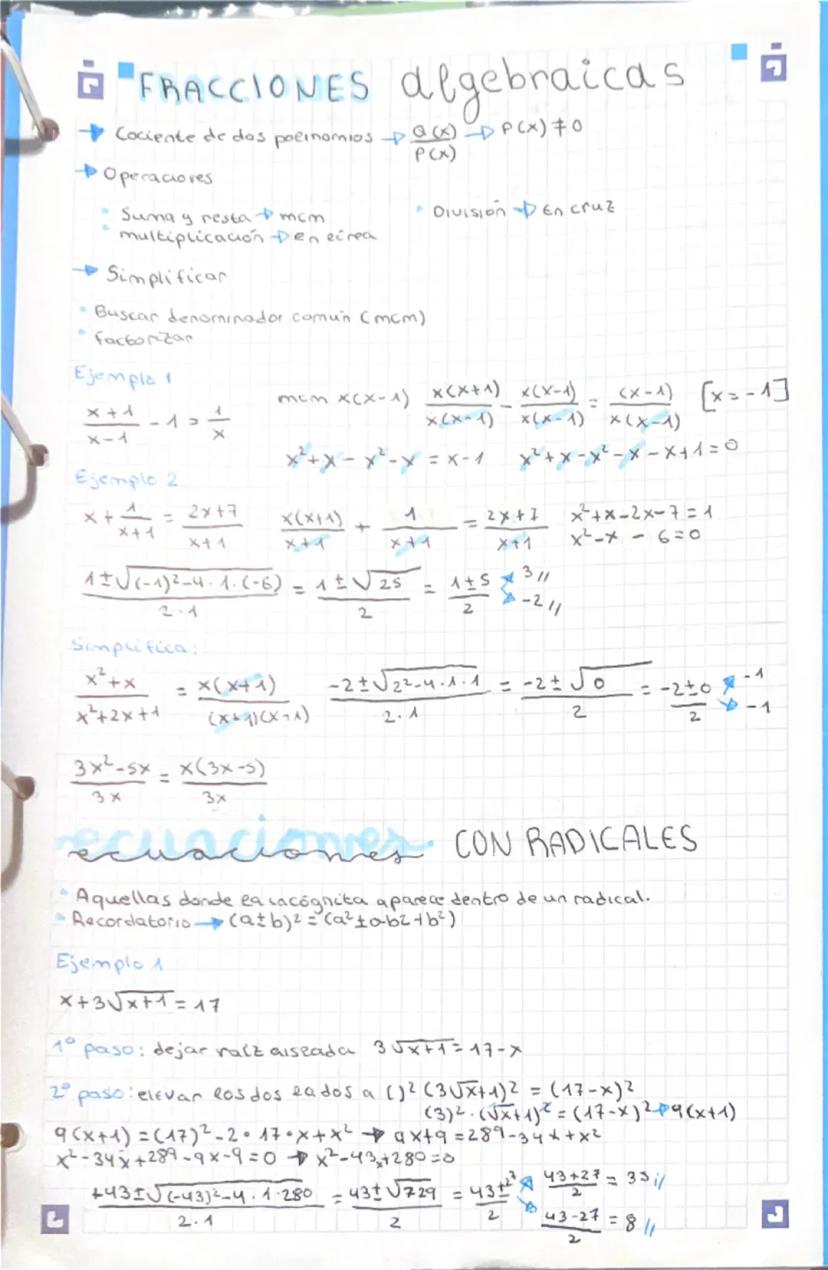 FRACCIONES algebraicas
→ Cociente de dos polinomios → Q(x)/P(x) → P(x) ≠ 0
→ Operaciones
• Suma y resta → mcm • División → En cruz
• multiplicación → en línea
→ Simplificar
• Buscar denominador común (mcm)
• factorizar
Ejemplo 1
(x+1)/(x-1) - 1 = 1/x mcm x(x-1) x(x+1)/x(x-1) - x(x-1)/x(x-1) = (x-1)/x(x-1) [x=-1]
x²+x-x²-x = x-1 x²+x-x²-x-x+1=0
Ejemplo 2
x+1/(x+1) = (2x+7)/(x+1) x(x+1)/(x+1) + 1/(x+1) = (2x+7)/(x+1) x²+x-2x-7=1
x²-x - 6=0
(1±√((-1)²-4·1·(-6)))/(2·1) = (1±√25)/2 = (1±5)/2 3// -2//
Simplifica:
(x²+x)/(x²+2x+1) = x(x+1)/(x+1)(x+1) (-2±√(2²-4·1·1))/(2·1) = (-2±√0)/2 = (-2±0)/2 → -1 → -1
(3x²-5x)/3x = x(3x-5)/3x
ecuaciones CON RADICALES
• Aquellas donde la incógnita aparece dentro de un radical.
• Recordatorio → (a±b)² = (a²±ab2+b²)
Ejemplo 1
x+3√(x+1) = 17
1º paso: dejar raíz aislada 3√(x+1) = 17-x
2º paso: elevar los dos lados a ()² (3√x+1)² = (17-x)²
(3)²·(√x+1)² = (17-x)² → 9(x+1)
9(x+1) = (17)²-2·17·x+x² → 9x+9 = 289-34x+x²
x²-34x+289-9x-9=0 → x²-43x+280=0
(+43±√((-43)²-4·1·280))/(2·1) = (43±√729)/2 = (43±27)/2 (43+27)/2 = 35//
(43-27)/2 = 8//